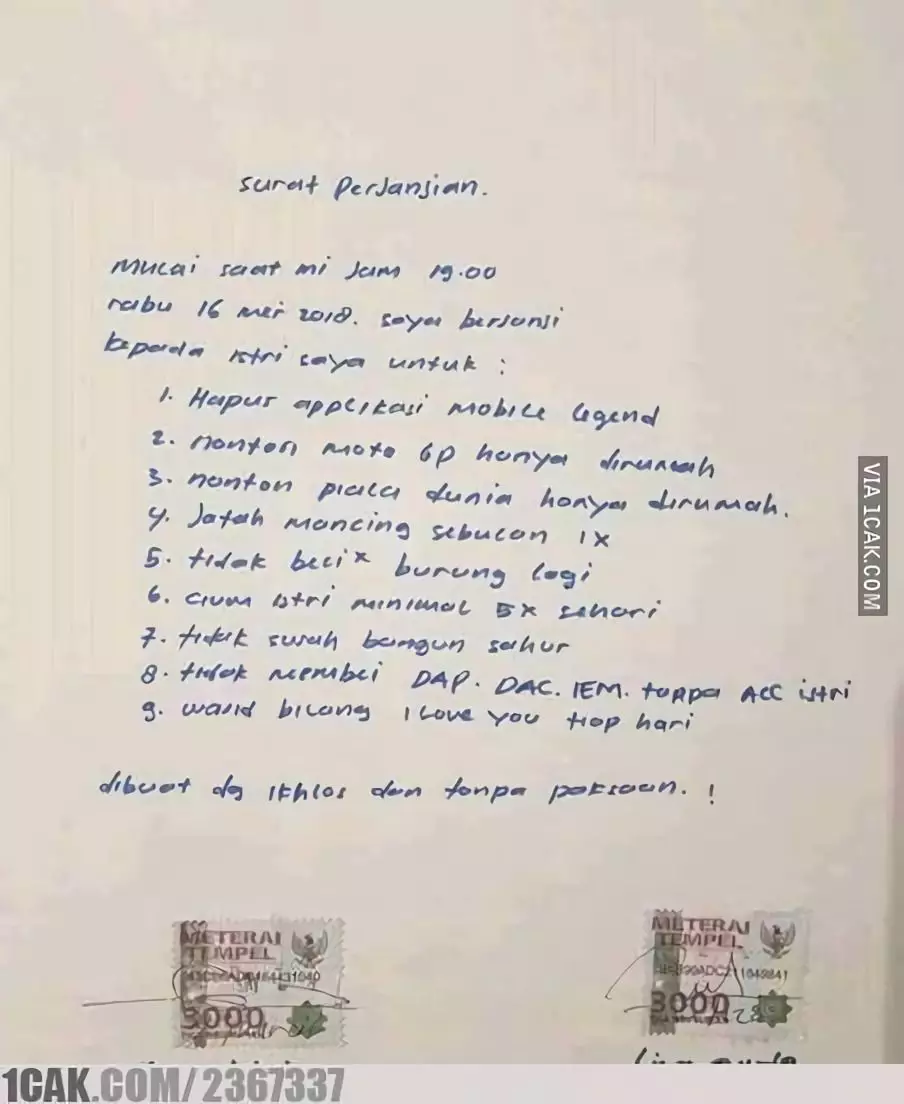 surat perjanjian.
mulai saat ini jam 19.00
rabu 16 mei 2018. saya berjanji
kepada istri saya untuk :
1. Hapus applikasi mobile legend
2. nonton moto GP hanya dirumah
3. nonton piala dunia hanya dirumah.
4. Jatah mancing sebulan 1x
5. tidak beli x burung lagi
6. cium istri minimal 5x sehari
7. tidak susah bangun sahur
8. tidak membeli DAP. DAC. IEM. tanpa ACC istri
9. wajib bilang I Love you tiap hari
dibuat dg ikhlas dan tanpa paksaan. !
METERAI
TEMPEL
3000
METERAI
TEMPEL
3000
VIA 1CAK.COM
1CAK.COM/2367337